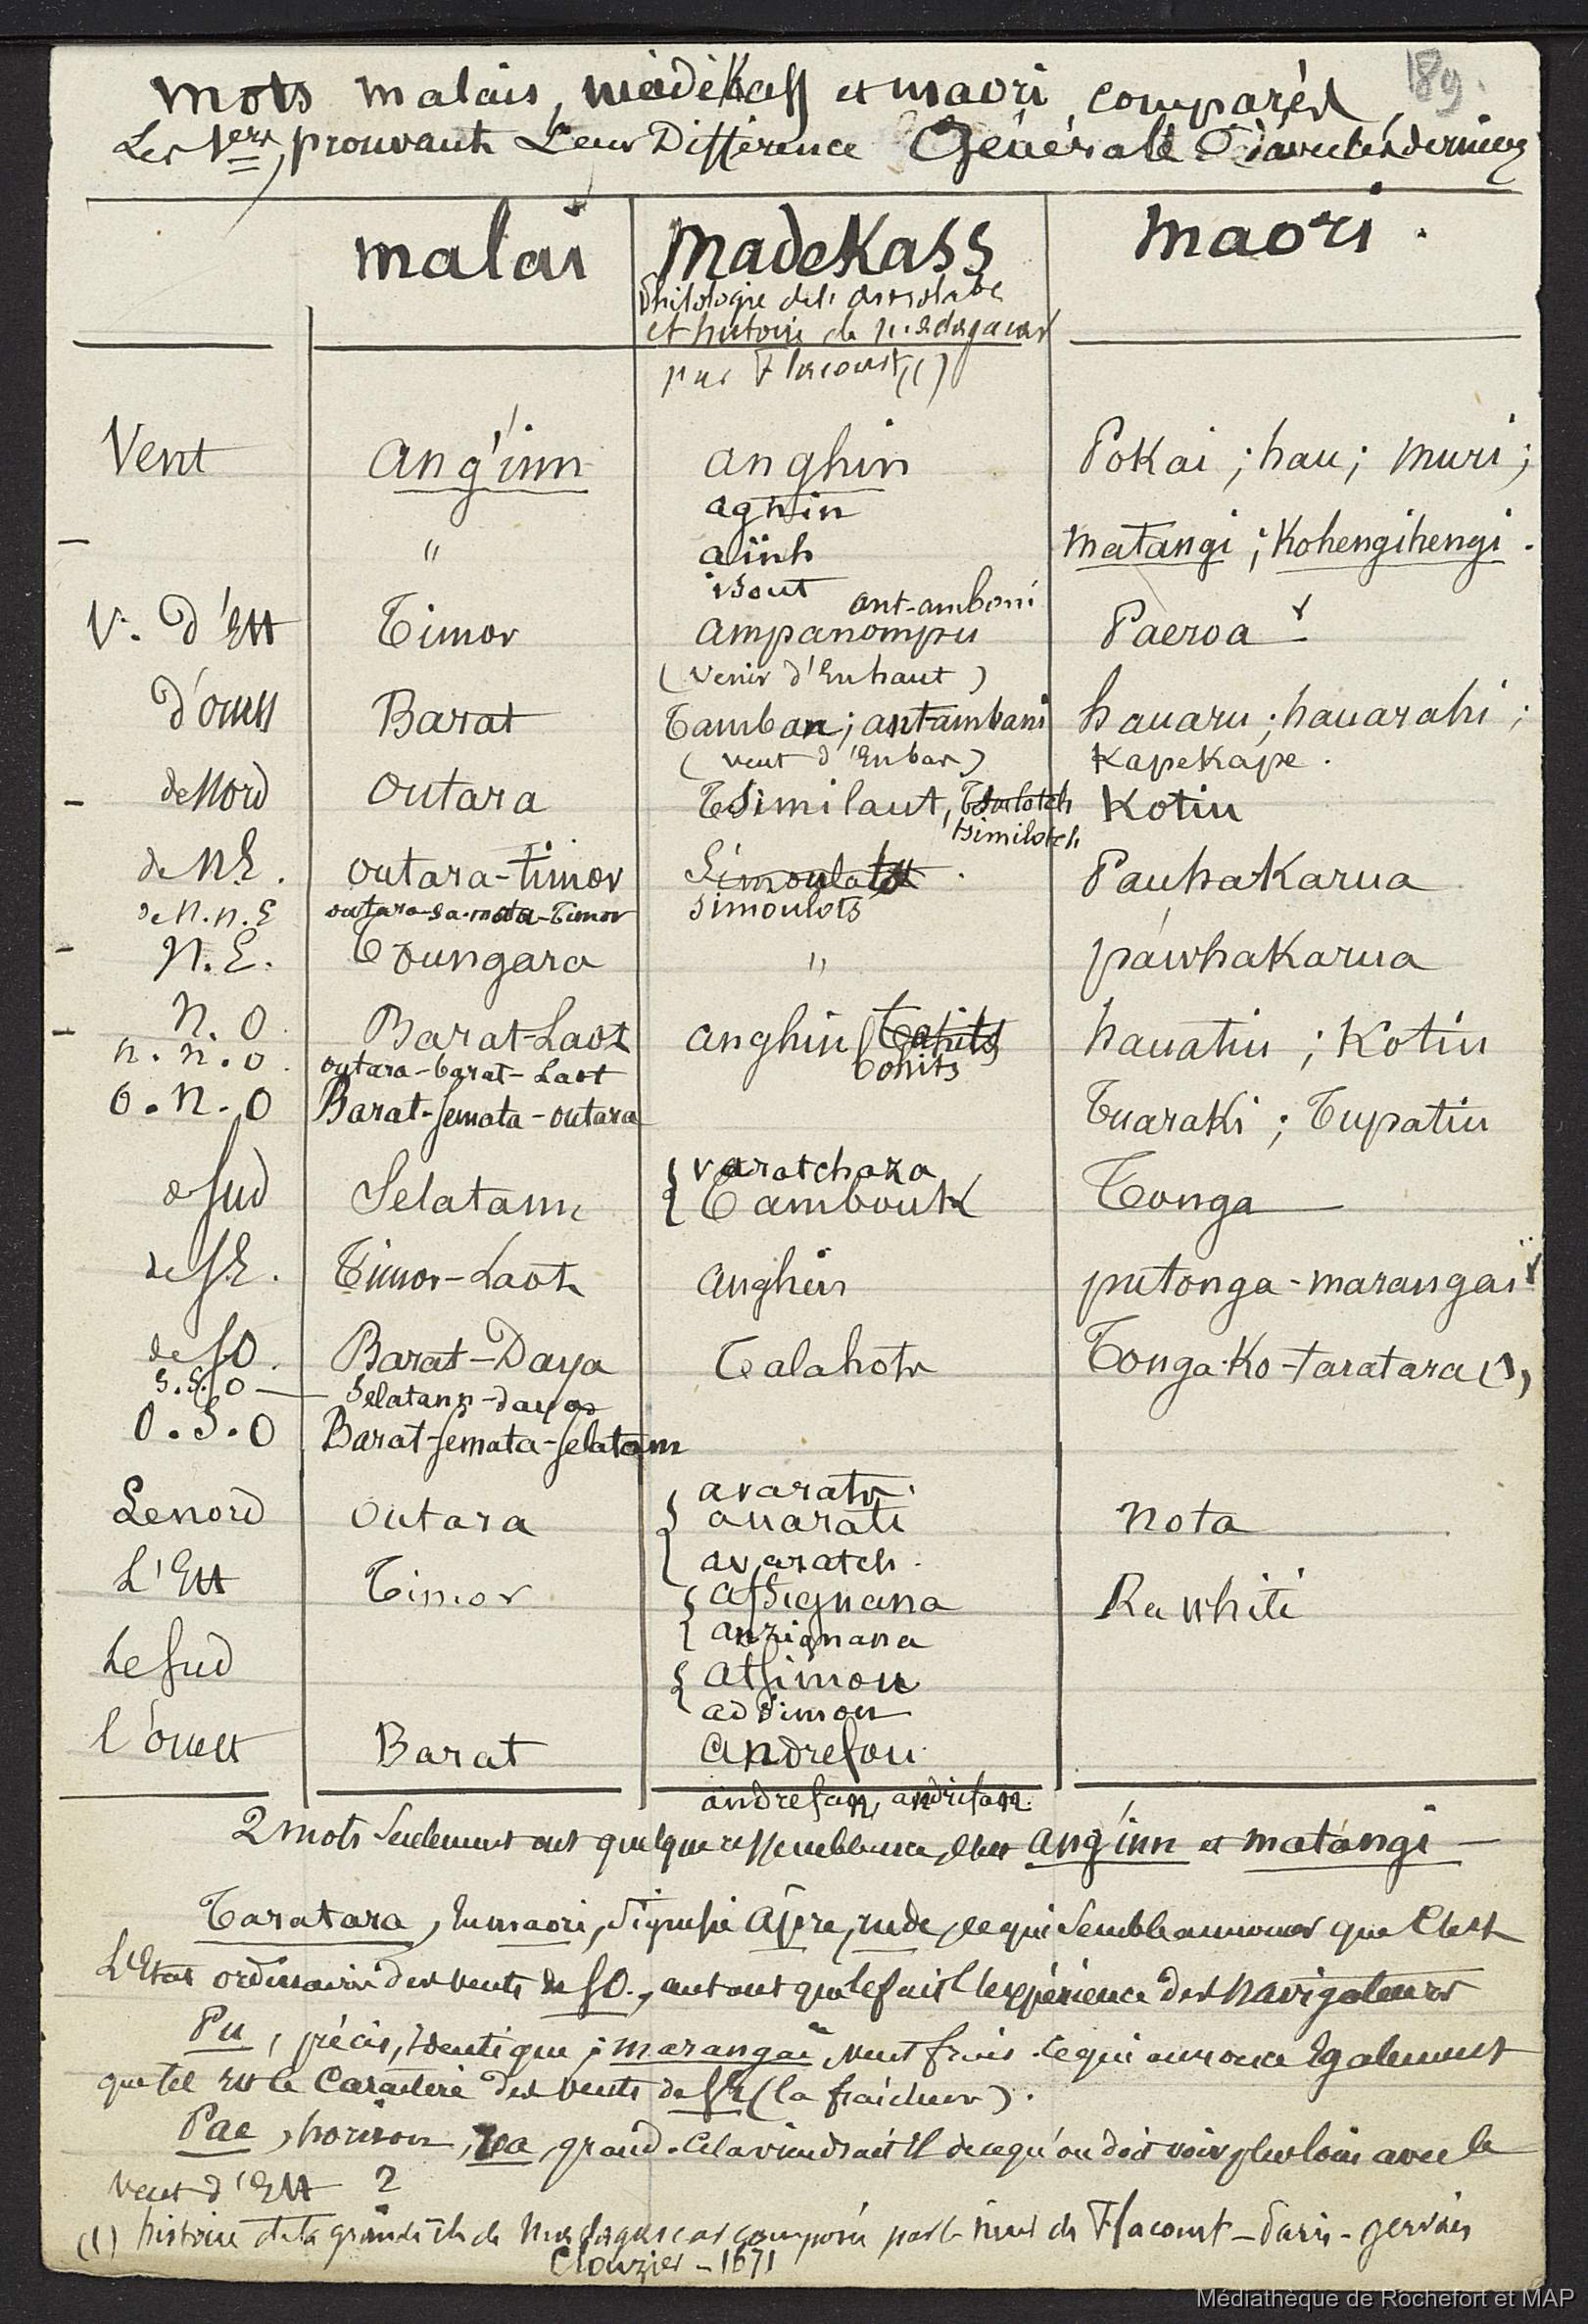 189.
Mots malais, madékass et maori, comparés,
Les 1ers, prouvant Leur Différence Générale D'avec les derniers
malai madekass maori.
Philologie de l'astrolabe
et histoire de madagascar
par Flacourt (1)
Vent ang'inn anghin Pokai ; hau ; muri ;
aghin
" aïnh matangi ; Kohengihengi.
isout
ant-amboni
V. d'Est Timor ampanompu Paeroa
(venir d'Enhaut)
d'ouest Barat Tamban ; antambani hauaru ; hauarahi ;
(vent d'Enbas) Kapekape.
de Nord outara Tsimilaut, Tsoulotch Kotiu
tsimilotch
de N.E. outara-timor Simoulots Pauhakarua
de N.n.E outara-sa-mata-Timor simoulots
N.E. Toungara " páwhakarua
N.O. Barat-Laot anghin Tahits hauatiu ; Kotiu
n.n.o. outara-barat-Laot Tohits
O.N.O Barat-semata-outara Tuaraki ; Tupatiu
varatchaza
de Sud Selatann Tambouk Tonga
de S.E. Timor-Laot anghin putonga-marangai
de SO. Barat-Daya Talahotr Tonga-Ko-taratara (1),
S.S.O Selatann-daya
O.S.O Barat-semata-selatann
avaratr.
Le nord outara auarati nota
avaratch.
L'Est Timor assignana Rawhiti
anzignana
Le Sud atsimou
adsimou
l'ouest Barat andrefou
andrefan, andrifan.
2 mots seulement ont quelque ressemblance, c'est ang'inn et matangi
Taratara, En maori, signifie âpre, rude, ce qui semble annoncer que C'est
L'Etat ordinaire des vents de SO., autant que le fait l'expérience des navigateurs
Pu, précis, identique ; marangai, vent frais. Ce qui annonce Egalement
que tel Est le Caractère des vents de SE (la fraîcheur).
Pae, horison, roa, grand. Cela viendrait-il de ce qu'on doit voir plus loin avec le
vent d'Est ?
(1) histoire de la grande île de Madagascar composée par le sieur de Flacourt - Paris - gervais
Clouzier - 1671
Médiathèque de Rochefort et MAP